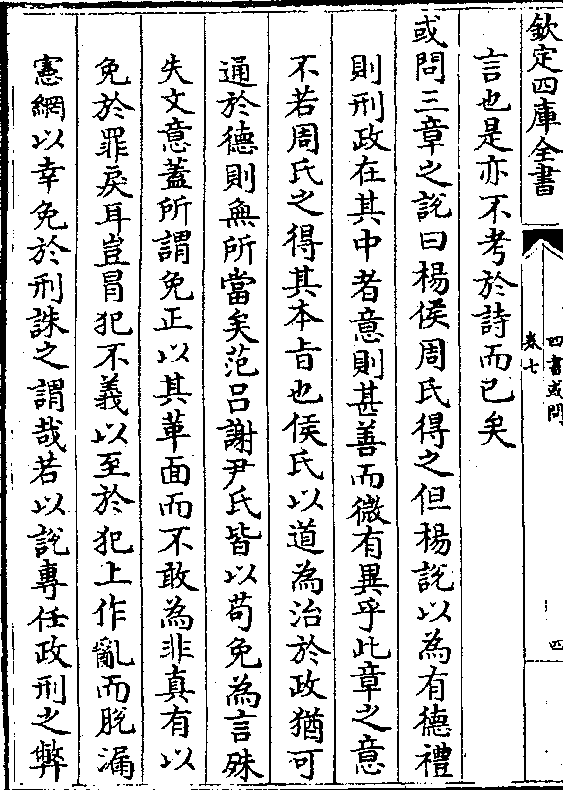 欽定四庫全書
四書或問
卷七
四
言也是亦不考於詩而已矣
或問三章之說曰楊侯周氏得之但楊說以為有德禮
則刑政在其中者意則甚善而微有異乎此章之意
不若周氏之得其本㫖也侯氏以道為治於政猶可
通於德則無所當矣范吕謝尹氏皆以苟免為言殊
失文意蓋所謂免正以其革面而不敢為非真有以
免於罪戾耳豈冒犯不義以至於犯上作亂而脫漏
憲網以幸免於刑誅之謂哉若以說專任政刑之弊